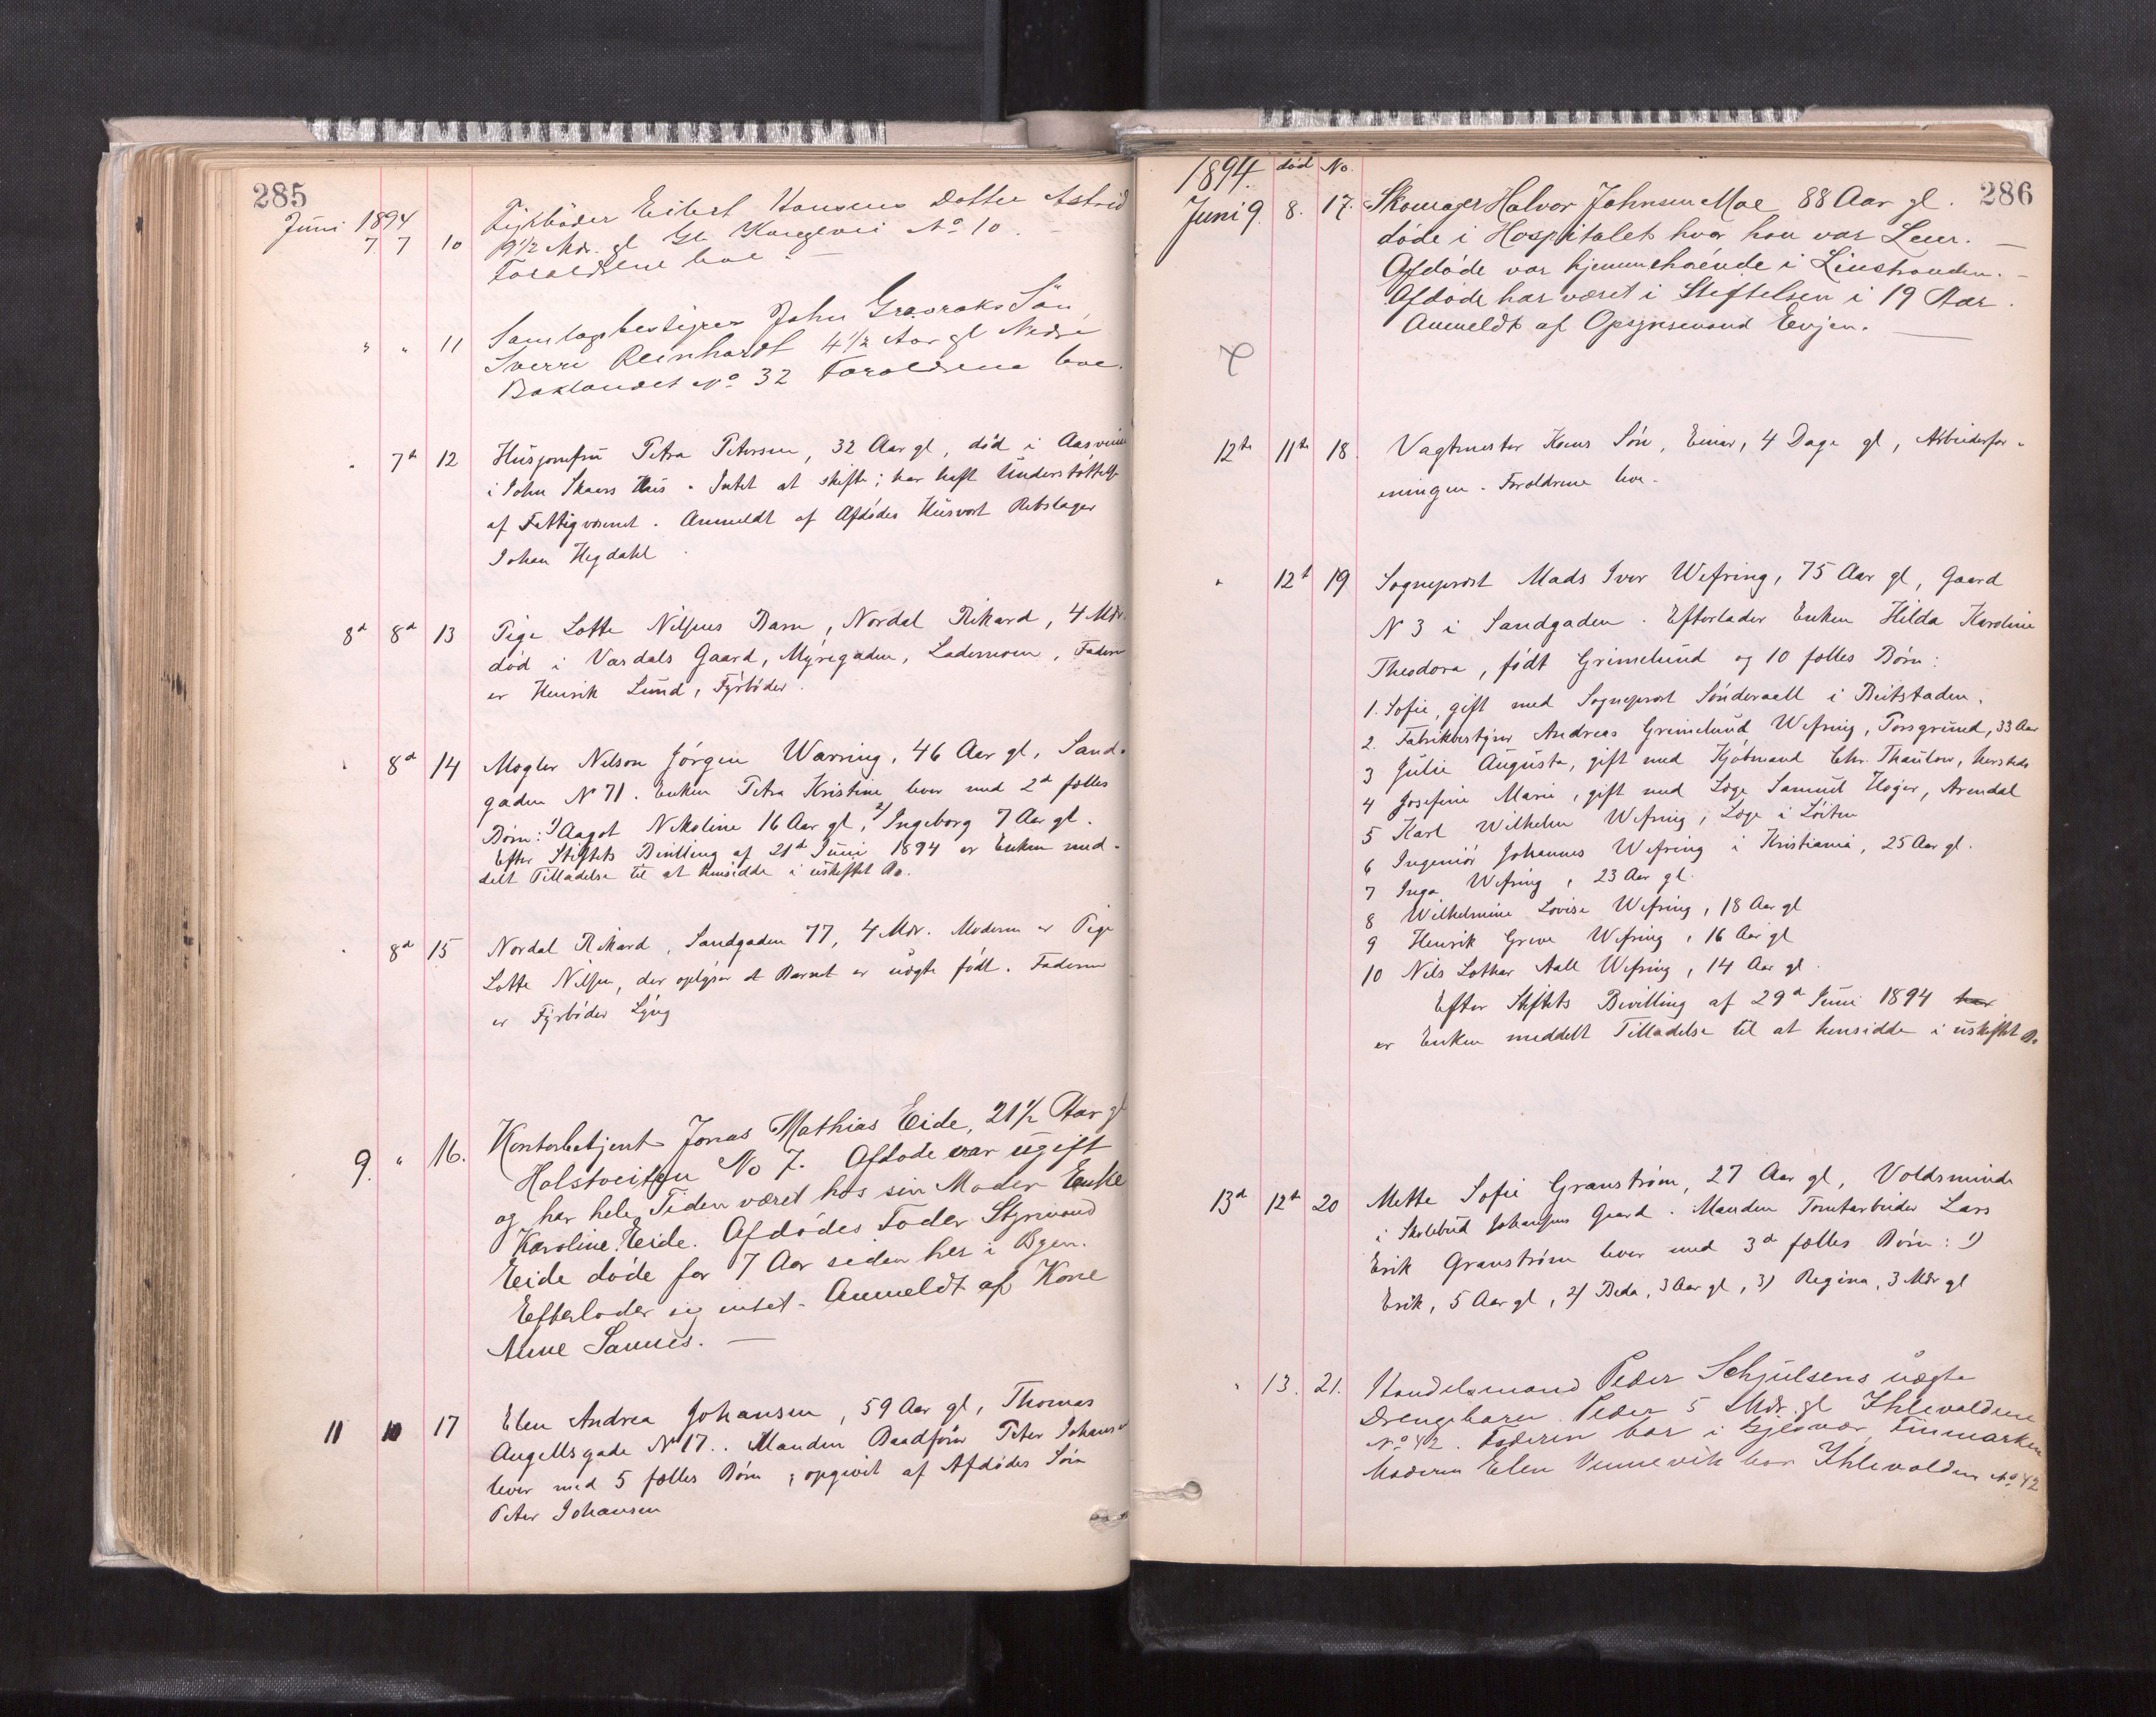 285
Juni 1894
7 7 10 Fyrbøder Eilert Hansens Datter Astrid
9 1/2 Mdr. gl Gl. Kongevei No 10. —
Forældrene leve. —
" " 11 Samlagsbestyrer John Gravraks Søn
Sverre Reinhardt 4 1/2 Aar gl Nedre
Baklandet No 32 Forældrene leve.
" 7d 12 Husjomfru Petra Petersen, 32 Aar gl, død i Aasveien
i John Skaers Hus. Intet at skifte; har haft Understøttelse
af Fattigvæsenet. Anmeldt af Afdødes Husvært Rebslager
Johan Hegdahl.
8d 8d 13 Pige Lotte Nilsens Barn, Nordal Rikard, 4 Mdr.
død i Værdals Gaard, Myregaden, Lademoen, Faderen
er Henrik Lund, Fyrbøder.
" 8d 14 Mægler Nelson Jørgen Warring, 46 Aar gl, Sand-
gaden N 71. Enken Petra Kristine lever med 2d fælles
Børn: 1) Aagot Nikoline 16 Aar gl, 2) Ingeborg 7 Aar gl.
Efter Stiftets Bevilling af 21d Juni 1894 er Enken med-
delt Tilladelse til at hensidde i uskiftet Bo.
" 8d 15 Nordal Rikard, Sandgaden 77, 4 Mdr. Moderen er Pige
Lotte Nilsen, der oplyser at Barnet er uægte født. Faderen
er Fyrbøder Lyng
9. " 16. Kontorbetjent Jonas Mathias Eide, 21 1/2 Aar gl
Holstveiten No 7. Afdøde var ugift
og har hele Tiden været hos sin Moder Enke
Karoline Eide. Afdødes Fader Styrmand
Eide døde for 7 Aar siden her i Byen.
Efterlader sig intet. Anmeldt af Kone
Anne Sannes. —
11 10 17 Elen Andrea Johansen, 59 Aar gl, Thomas
Angellsgade N 17. Manden Baadfører Peter Johansen
lever med 5 fælles Børn; opgivet af Afdødes Søn
Peter Johansen
1894. død No. 286
Juni 9. 8. 17. Skomager Halvor Johnsen Moe 88 Aar gl.
døde i Hospitalet hvor han var Lem. —
Afdøde var hjemmehørende i Leinstranden. —
Afdøde har været i Stiftelsen i 19 Aar.
Anmeldt af Opsynsmand Evjen. —
12te 11te 18. Vagtmester Søn, Einar, 4 Dage gl, Arbeiderfor-
eningen. Forældrene leve.
" 12t 19 Sogneprest Mads Iver Wefring, 75 Aar gl, Gaard
N 3 i Sandgaden. Efterlader Enken Hilda Karoline
Theodora, født Grimelund og 10 fælles Børn:
1. Sofie, gift med Sogneprest Sønderaell i Beitstaden.
2. Fabrikbestyrer Andreas Grimelund Wefring, Porsgrund, 33 Aar
3 Julie Augusta, gift med Kjøbmand Chr. Thaulow, hersteds
4 Josefine Marie, gift med Læge Samuel Høyer, Arendal
5 Karl Wilhelm Wefring, Læge i Løiten
6 Ingeniør Johannes Wefring i Kristiania, 25 Aar gl.
7 Inga Wefring, 23 Aar gl.
8 Wilhelmine Lovise Wefring, 18 Aar gl
9 Henrik Greve Wefring, 16 Aar gl
10 Nils Lothar Aall Wefring, 14 Aar gl.
Efter Stiftets Bevilling af 29d Juni 1894 har
er Enken meddelt Tilladelse til at hensidde i uskiftet Bo
13d 12te 20 Mette Sofie Granstrøm, 27 Aar gl, Voldsminde
i Johansens Gaard. Manden Tomtarbeider Lars
Erik Granstrøm lever med 3d fælles Børn: 1)
Erik, 5 Aar gl, 2) Beda, 3 Aar gl, 3) Regina, 3 Mdr gl
" 13. 21. Handelsmand Peder Schjulsens uægte
Drengebarn Peder 5 Mdr. gl Ihlevolden
No 42. Faderen bor i Gjesvær, Finmarken
Moderen Elen Vennevik bor Ihlevolden No 42